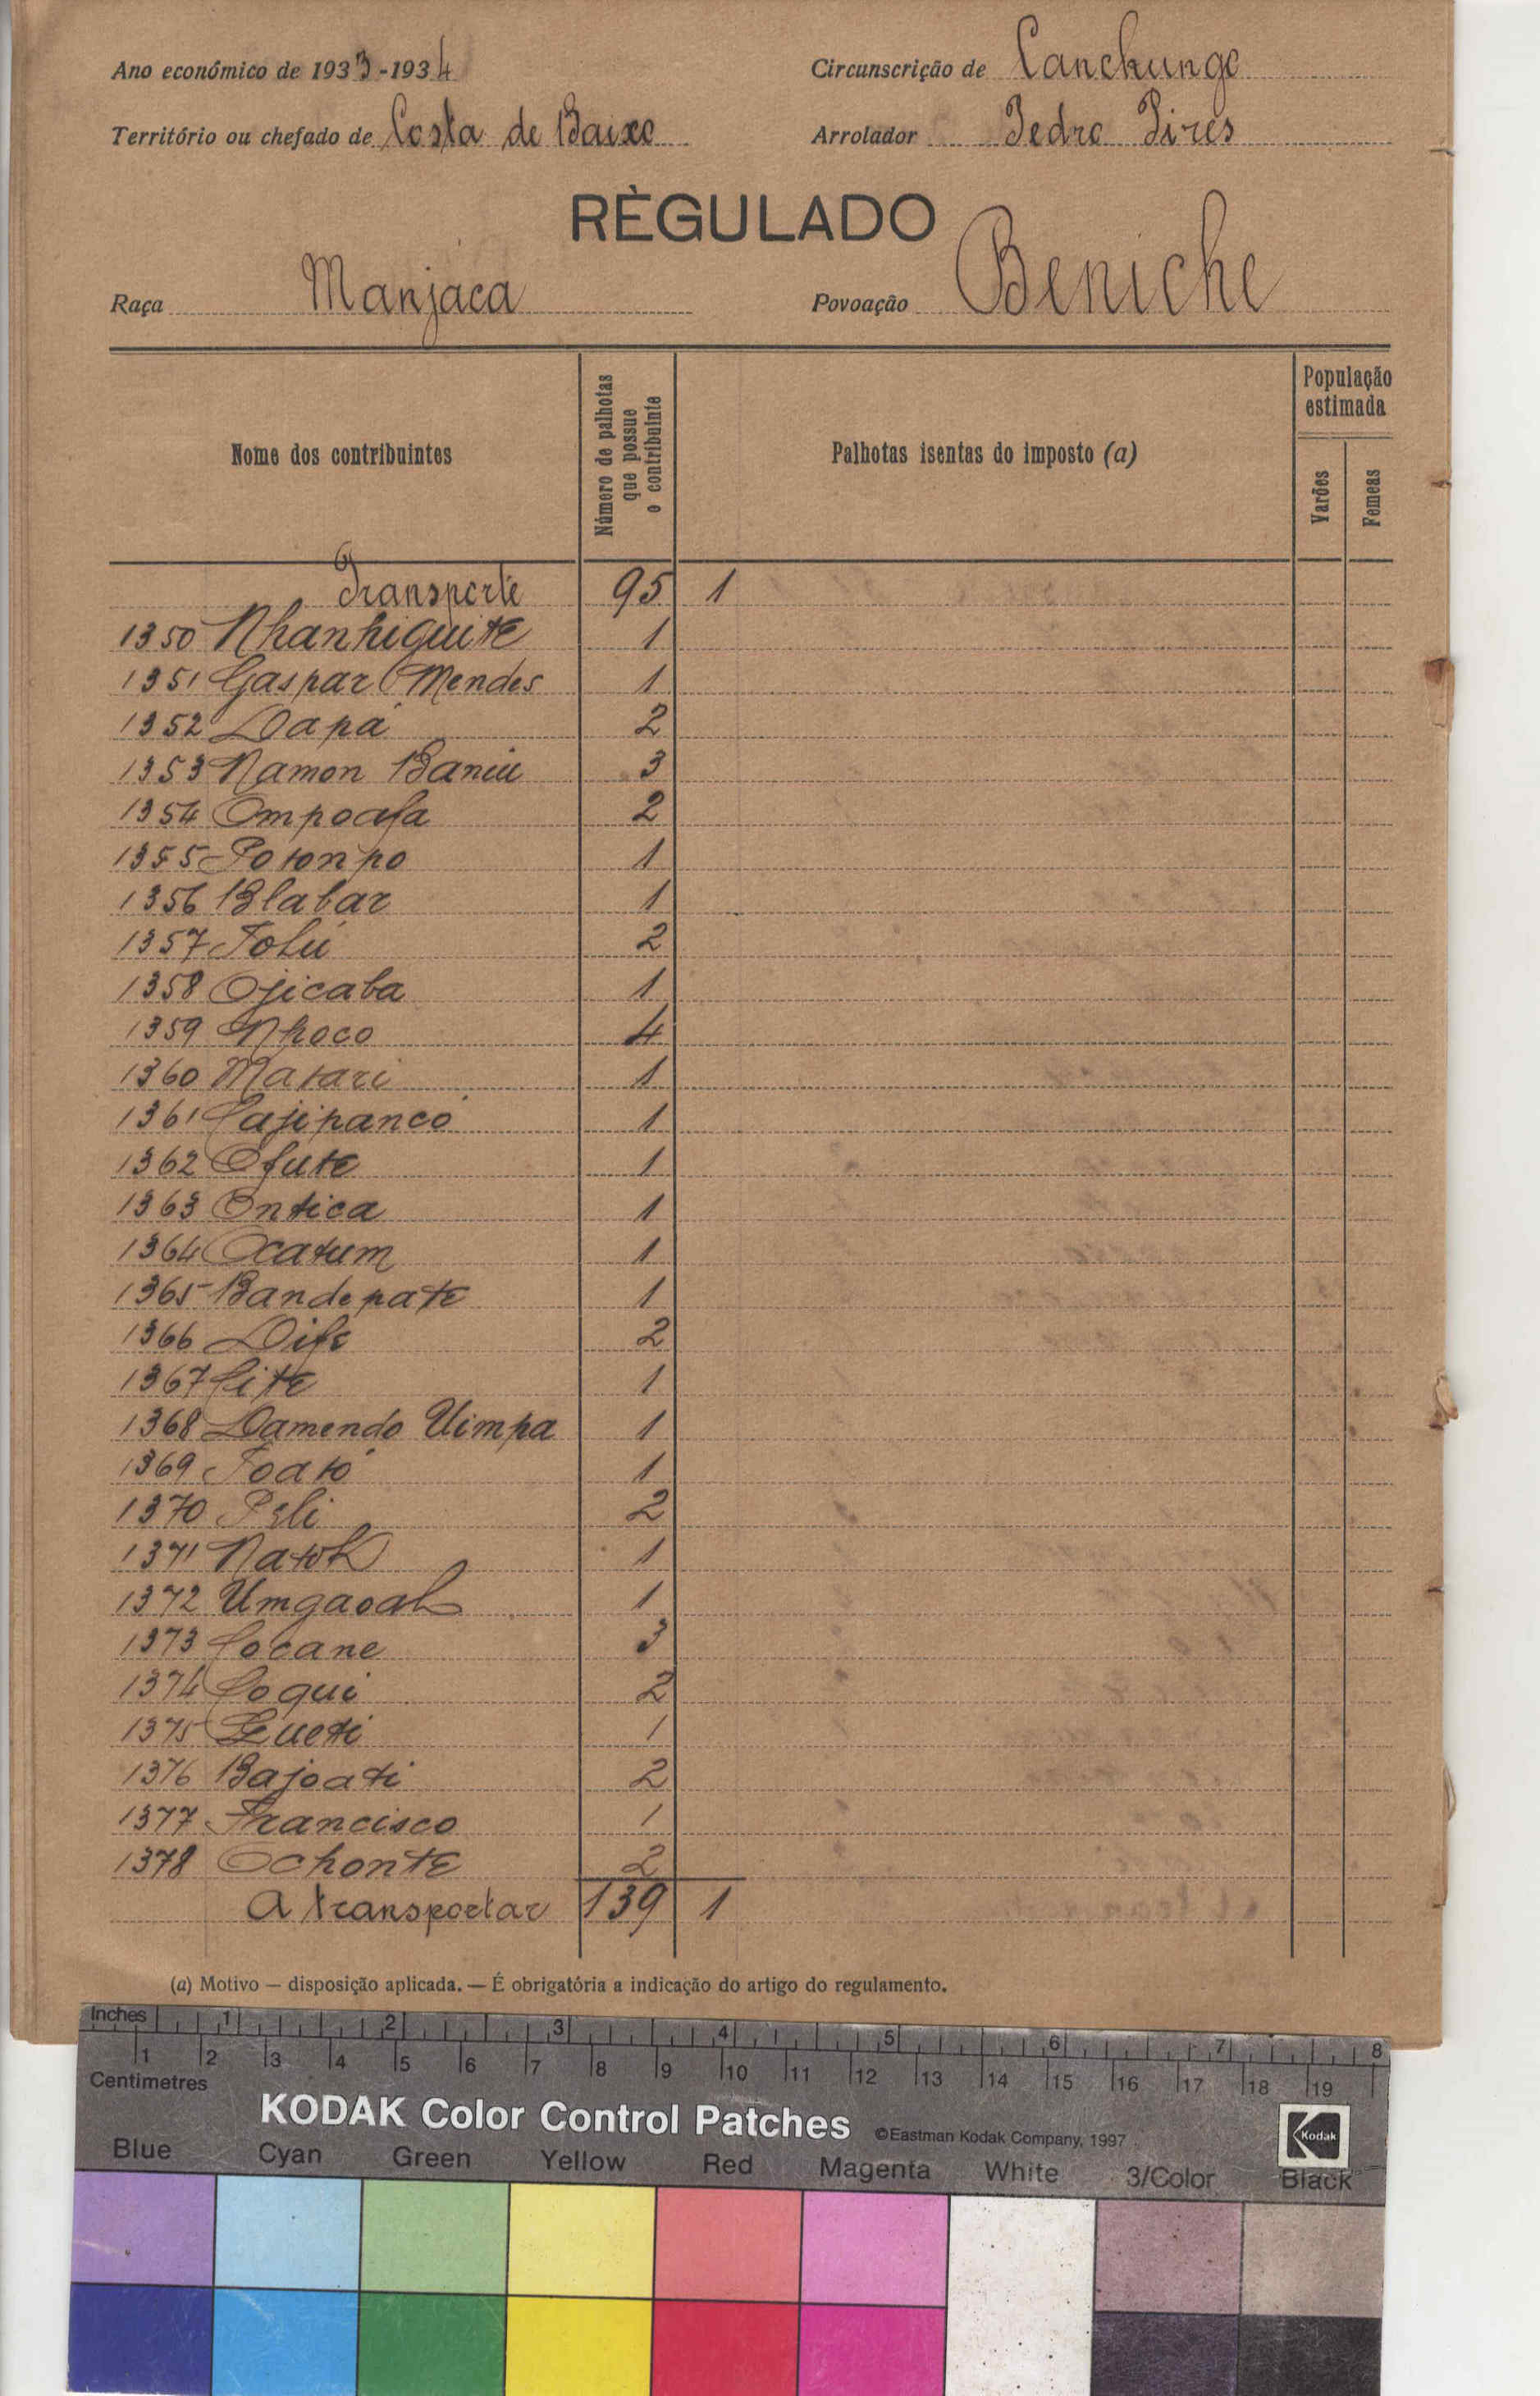 Ano económico de 1933-1934
Circunscrição de Canchungo
Território ou chefado de Costa de Baixo
Arrolador Pedro Pires
RÈGULADO
Raça Manjaca
Povoação Beniche
Nome dos contribuintes
Número de palhotas que possue o contribuinte
Palhotas isentas do imposto (a)
População estimada
Varões
Femeas
Transporte 95 1
1350 Nhanhiguite 1
1351 Gaspar Mendes 1
1352 Dapá 2
1353 Namon Baniu 3
1354 Ompoafa 2
1355 Potonpo 1
1356 Blabar 1
1357 Tolú 2
1358 Ojicaba 1
1359 Nhoco 4
1360 Matari 1
1361 Cajipancó 1
1362 Ofute 1
1363 Ontica 1
1364 Ocatum 1
1365 Bandepate 1
1366 Dife 2
1367 Cite 1
1368 Damendo Uimpa 1
1369 Toató 1
1370 Psli 2
1371 1
1372 Umgaoal 1
1373 Cocane 3
1374 Coqui 2
1375 1
1376 Bajoati 2
1377 Francisco 1
1378 Ochonte 2
A transportar 139 1
(a) Motivo — disposição aplicada. — É obrigatória a indicação do artigo do regulamento.
Inches 1 2 3 4 5 6 7 8
1 2 3 4 5 6 7 8 9 10 11 12 13 14 15 16 17 18 19
Centimetres
KODAK Color Control Patches ©Eastman Kodak Company, 1997 Kodak
Blue Cyan Green Yellow Red Magenta White 3/Color Black